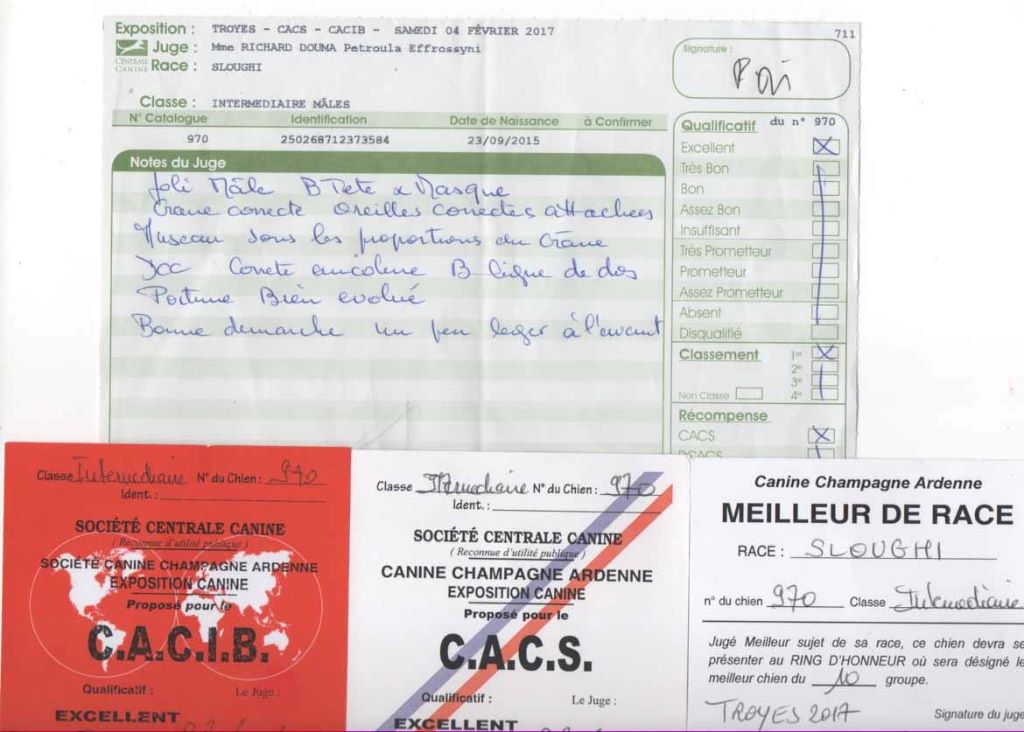 Exposition : TROYES - CACS - CACIB - SAMEDI 04 FÉVRIER 2017
711
Juge : Mme RICHARD DOUMA Petroula Effrossyni
CENTRALE CANINE
Race : SLOUGHI
Signature :
Classe : INTERMEDIAIRE MÂLES
N° Catalogue Identification Date de Naissance à Confirmer
970 250268712373584 23/09/2015
Notes du Juge
Joli Mâle B Tete & Masque
Crane correcte Oreilles correctes attachees
Museau sous les proportions du Crâne
Correte encolure B ligne de dos
Poitrine Bien evolué
Bonne demarche un peu leger à l'avant
Qualificatif du n° 970
Excellent
Très Bon
Bon
Assez Bon
Insuffisant
Très Prometteur
Prometteur
Assez Prometteur
Absent
Disqualifié
Classement 1er
2e
3e
Non Classé 4e
Récompense
CACS
RCACS
Classe Intermediaire N° du Chien : 970
Ident. :
SOCIÉTÉ CENTRALE CANINE
( Reconnue d'utilité publique )
SOCIÉTÉ CANINE CHAMPAGNE ARDENNE
EXPOSITION CANINE
Proposé pour le
C.A.C.I.B.
Qualificatif : Le Juge :
EXCELLENT
Classe Intermediaire N° du Chien : 970
Ident. :
SOCIÉTÉ CENTRALE CANINE
( Reconnue d'utilité publique )
CANINE CHAMPAGNE ARDENNE
EXPOSITION CANINE
Proposé pour le
C.A.C.S.
Qualificatif : Le Juge :
EXCELLENT
Canine Champagne Ardenne
MEILLEUR DE RACE
RACE : SLOUGHI
n° du chien 970 Classe Intermediaire
Jugé Meilleur sujet de sa race, ce chien devra se
présenter au RING D'HONNEUR où sera désigné le
meilleur chien du 10 groupe.
TROYES 2017 Signature du juge